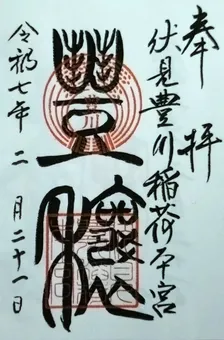 奉拝
伏見豊川稲荷本宮
豊穣
令和七年二月二十一日